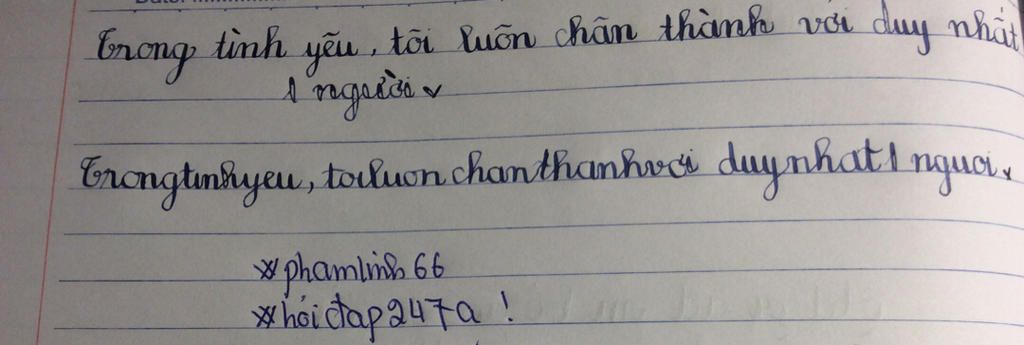 Trong tình yêu, tôi luôn chân thành với duy nhất
1 người.
Trongtinhyeu, toiluonchanthanhvơi duynhat1 nguoi.
*phamlinh66
*hỏiđap247a !